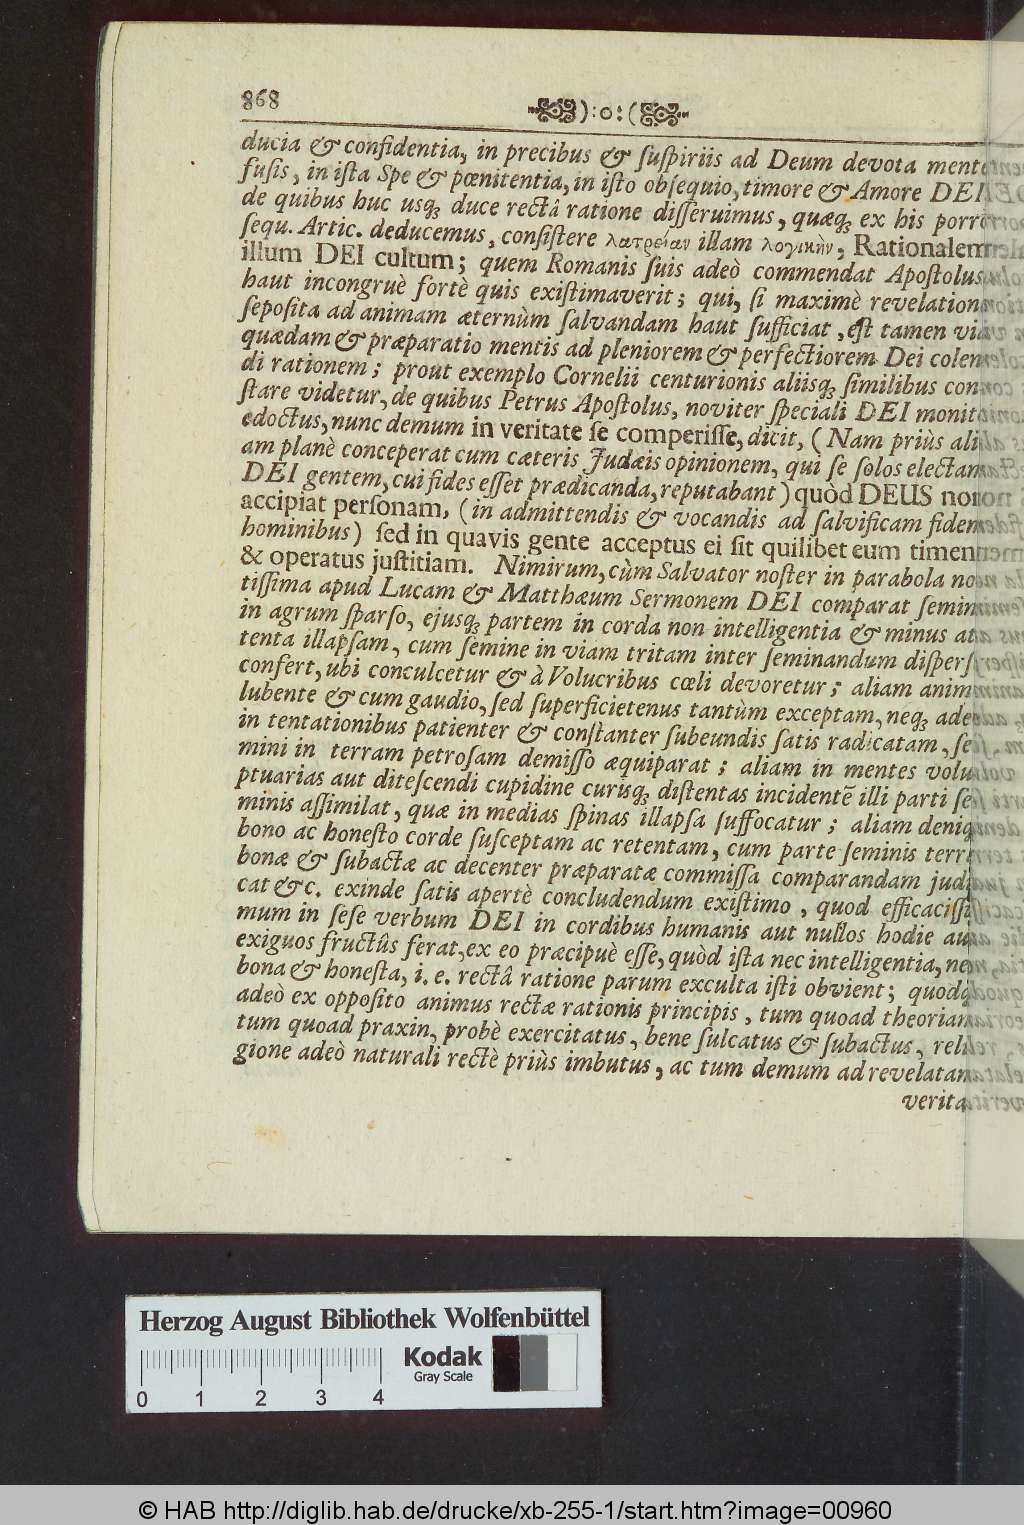 868 ):o:(
ducia & confidentia, in precibus & ſuſpiriis ad Deum devota mente
fuſis, in iſta Spe & pœnitentia, in iſto obſequio, timore & Amore DEI
de quibus huc usq; duce rectâ ratione diſſeruimus, quæq; ex his porrò
ſequ. Artic. deducemus, conſiſtere λατρείαν illam λογικὴν, Rationalem
illum DEI cultum; quem Romanis ſuis adeò commendat Apoſtolus
haut incongruè fortè quis exiſtimaverit; qui, ſi maximè revelatione
ſepoſita ad animam æternùm ſalvandam haut ſufficiat, eſt tamen via
quædam & præparatio mentis ad pleniorem & perfectiorem Dei colen-
di rationem; prout exemplo Cornelii centurionis aliisq; ſimilibus con-
ſtare videtur, de quibus Petrus Apoſtolus, noviter ſpeciali DEI monitu
edoctus, nunc demum in veritate ſe comperiſſe, dicit, (Nam priùs ali-
am planè conceperat cum cæteris Judæis opinionem, qui ſe ſolos electam
DEI gentem, cui fides eſſet prædicanda, reputabant) quòd DEUS non
accipiat perſonam, (in admittendis & vocandis ad ſalvificam fidem
hominibus) ſed in quavis gente acceptus ei ſit quilibet eum timens
& operatus juſtitiam. Nimirum, cùm Salvator noſter in parabola no-
tiſſima apud Lucam & Matthæum Sermonem DEI comparat ſemini
in agrum ſparſo, ejusq; partem in corda non intelligentia & minus at-
tenta illapſam, cum ſemine in viam tritam inter ſeminandum diſperſo
confert, ubi conculcetur & à Volucribus cœli devoretur; aliam animo
lubente & cum gaudio, ſed ſuperficietenus tantùm exceptam, neq; adeò
in tentationibus patienter & conſtanter ſubeundis ſatis radicatam, ſe-
mini in terram petroſam demiſſo æquiparat; aliam in mentes volu-
ptuarias aut diteſcendi cupidine curisq; diſtentas incidentē illi parti ſe-
minis aſſimilat, quæ in medias ſpinas illapſa ſuffocatur; aliam deniq;
bono ac honeſto corde ſuſceptam ac retentam, cum parte ſeminis terræ
bonæ & ſubactæ ac decenter præparatæ commiſſa comparandam judi-
cat &c. exinde ſatis apertè concludendum exiſtimo, quod efficaciſſi-
mum in ſeſe verbum DEI in cordibus humanis aut nullos hodie aut
exiguos fructûs ferat, ex eo præcipuè eſſe, quòd iſta nec intelligentia, nec
bona & honeſta, i. e. rectâ ratione parum exculta iſti obvient; quodq;
adeò ex oppoſito animus rectæ rationis principis, tum quoad theoriam
tum quoad praxin, probè exercitatus, bene ſulcatus & ſubactus, reli-
gione adeò naturali rectè priùs imbutus, ac tum demum ad revelatam
verita-
Herzog August Bibliothek Wolfenbüttel
Kodak
Gray Scale
0 1 2 3 4
© HAB http://diglib.hab.de/drucke/xb-255-1/start.htm?image=00960